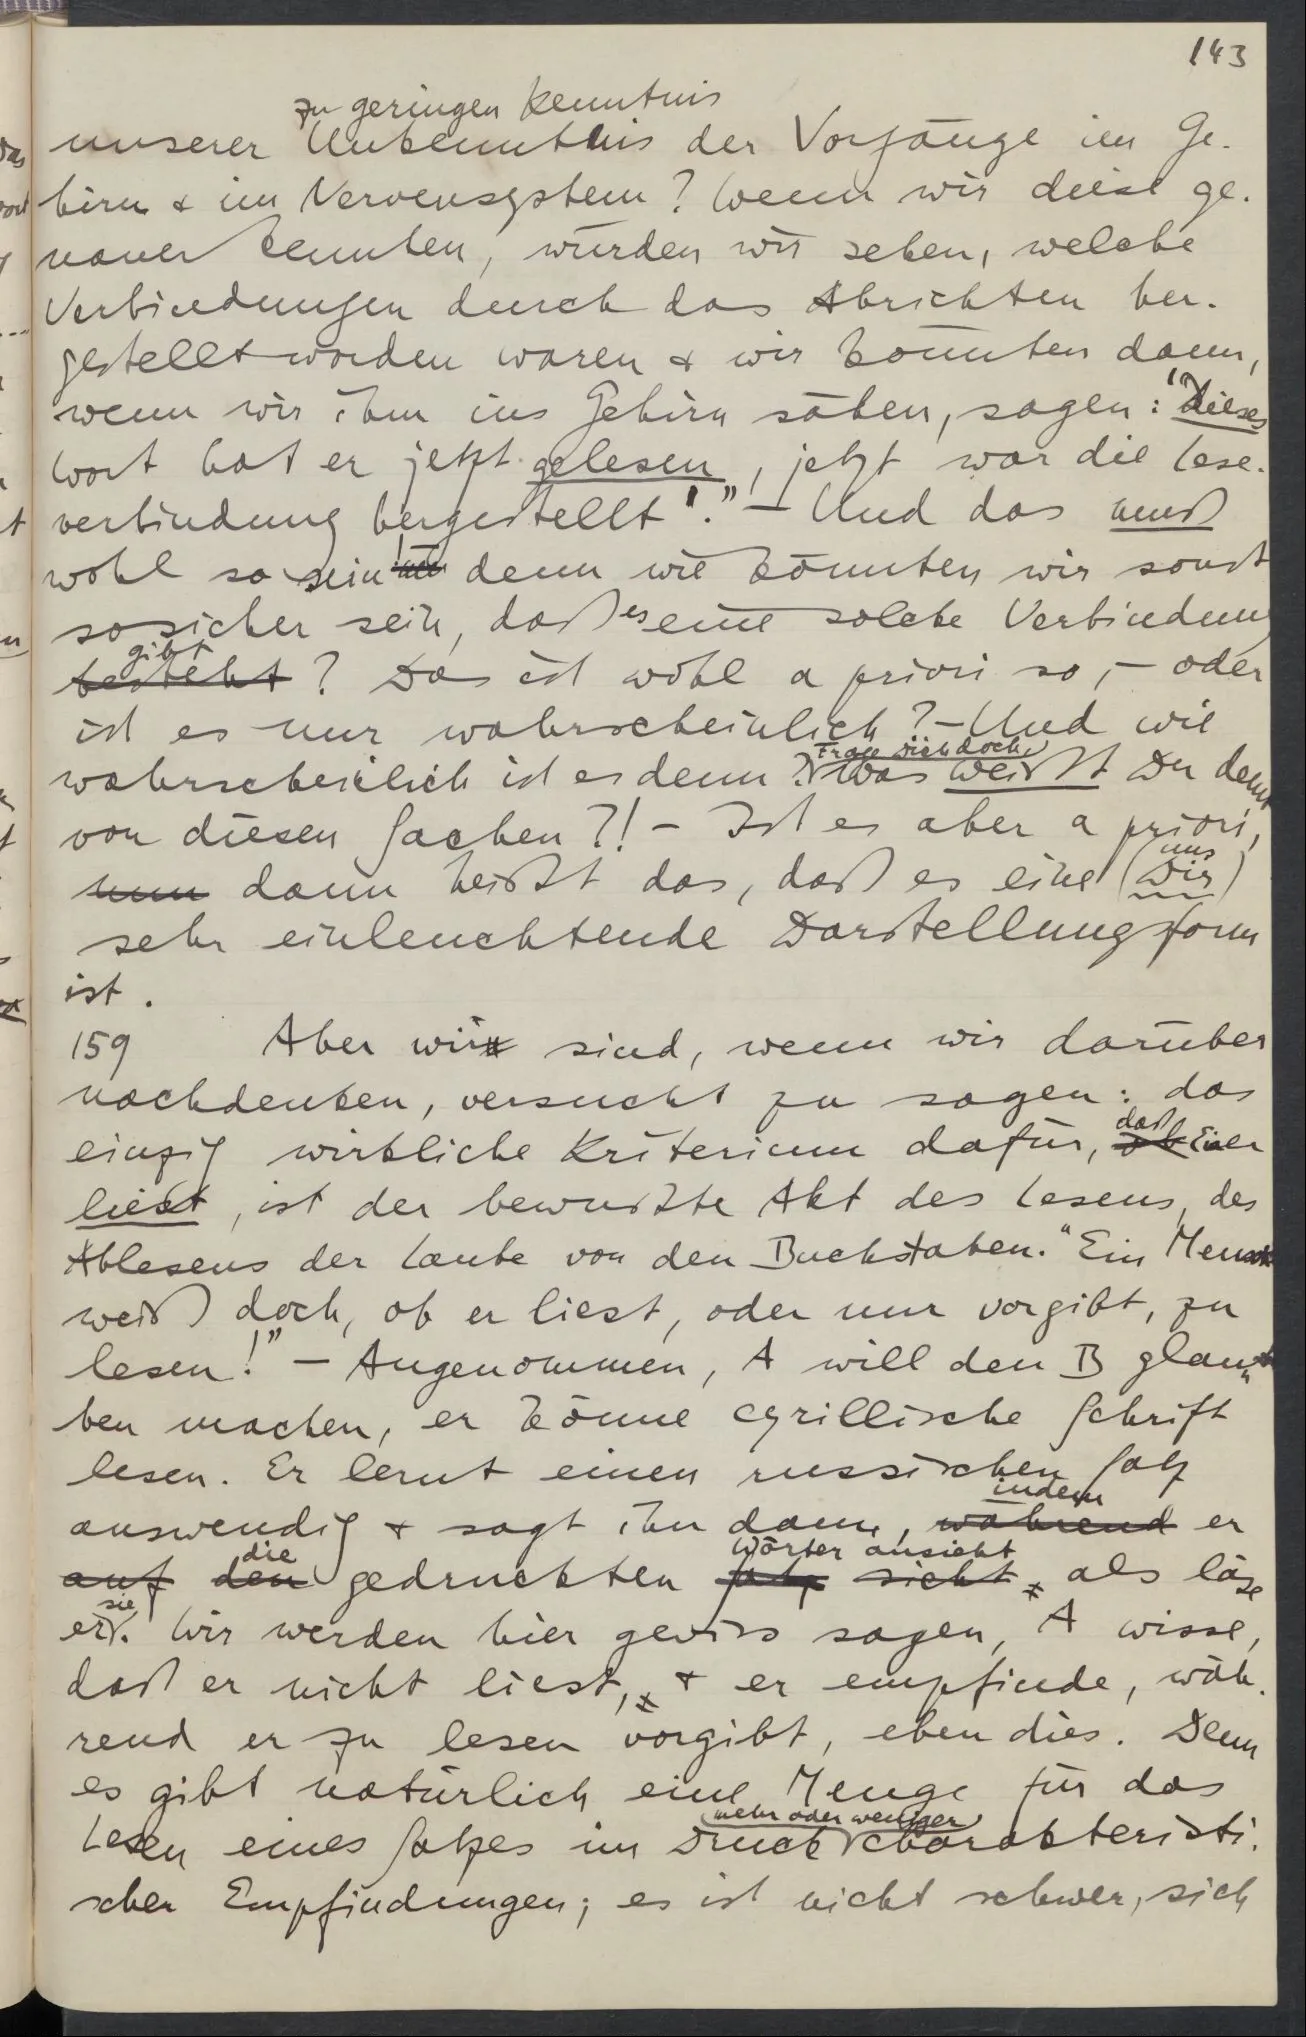 143
zu geringen Kenntnis
unserer Unkenntnis der Vorgänge im Ge-
hirn & im Nervensystem? Wenn wir diese ge-
nauer kennten, würden wir sehen, welche
Verbindungen durch das Abrichten her-
gestellt worden waren & wir könnten dann,
wenn wir ihm ins Gehirn sähen, sagen: "Dieses
Wort hat er jetzt gelesen, jetzt war die Lese-
verbindung hergestellt'." – Und das muß
wohl so sein! denn wie könnten wir sonst
so sicher sein, daß es eine solche Verbindung
gibt
besteht? Das ist wohl a priori so, – oder
ist es nur wahrscheinlich? – Und wie
Frage dich doch,
wahrscheinlich ist es denn? Was weißt Du denn
von diesen Sachen?! – Ist es aber a priori,
uns
nun dann heißt das, daß es eine (Dir)
sehr einleuchtende Darstellungsform
ist.
159 Aber wir sind, wenn wir darüber
nachdenken, versucht zu sagen: das
daß
einzig wirkliche Kriterium dafür, ob Einer
liest, ist der bewußte Akt des Lesens, des
Ablesens der Laute von den Buchstaben. "Ein Mensch
weiß doch, ob er liest, oder nur vorgibt, zu
lesen!" – Angenommen, A will den B glau-
ben machen, er könne cyrillische Schrift
lesen. Er lernt einen russischen Satz
indem
auswendig & sagt ihn dann, während er
die Wörter ansieht
auf den gedruckten Satz sieht, als läse
sie
er. Wir werden hier gewiss sagen, A wisse,
daß er nicht liest, & er empfinde, wäh-
rend er zu lesen vorgibt, eben dies. Denn
es gibt natürlich eine Menge für das
mehr oder weniger
Lesen eines Satzes im Druck charakteristi-
scher Empfindungen; es ist nicht schwer, sich